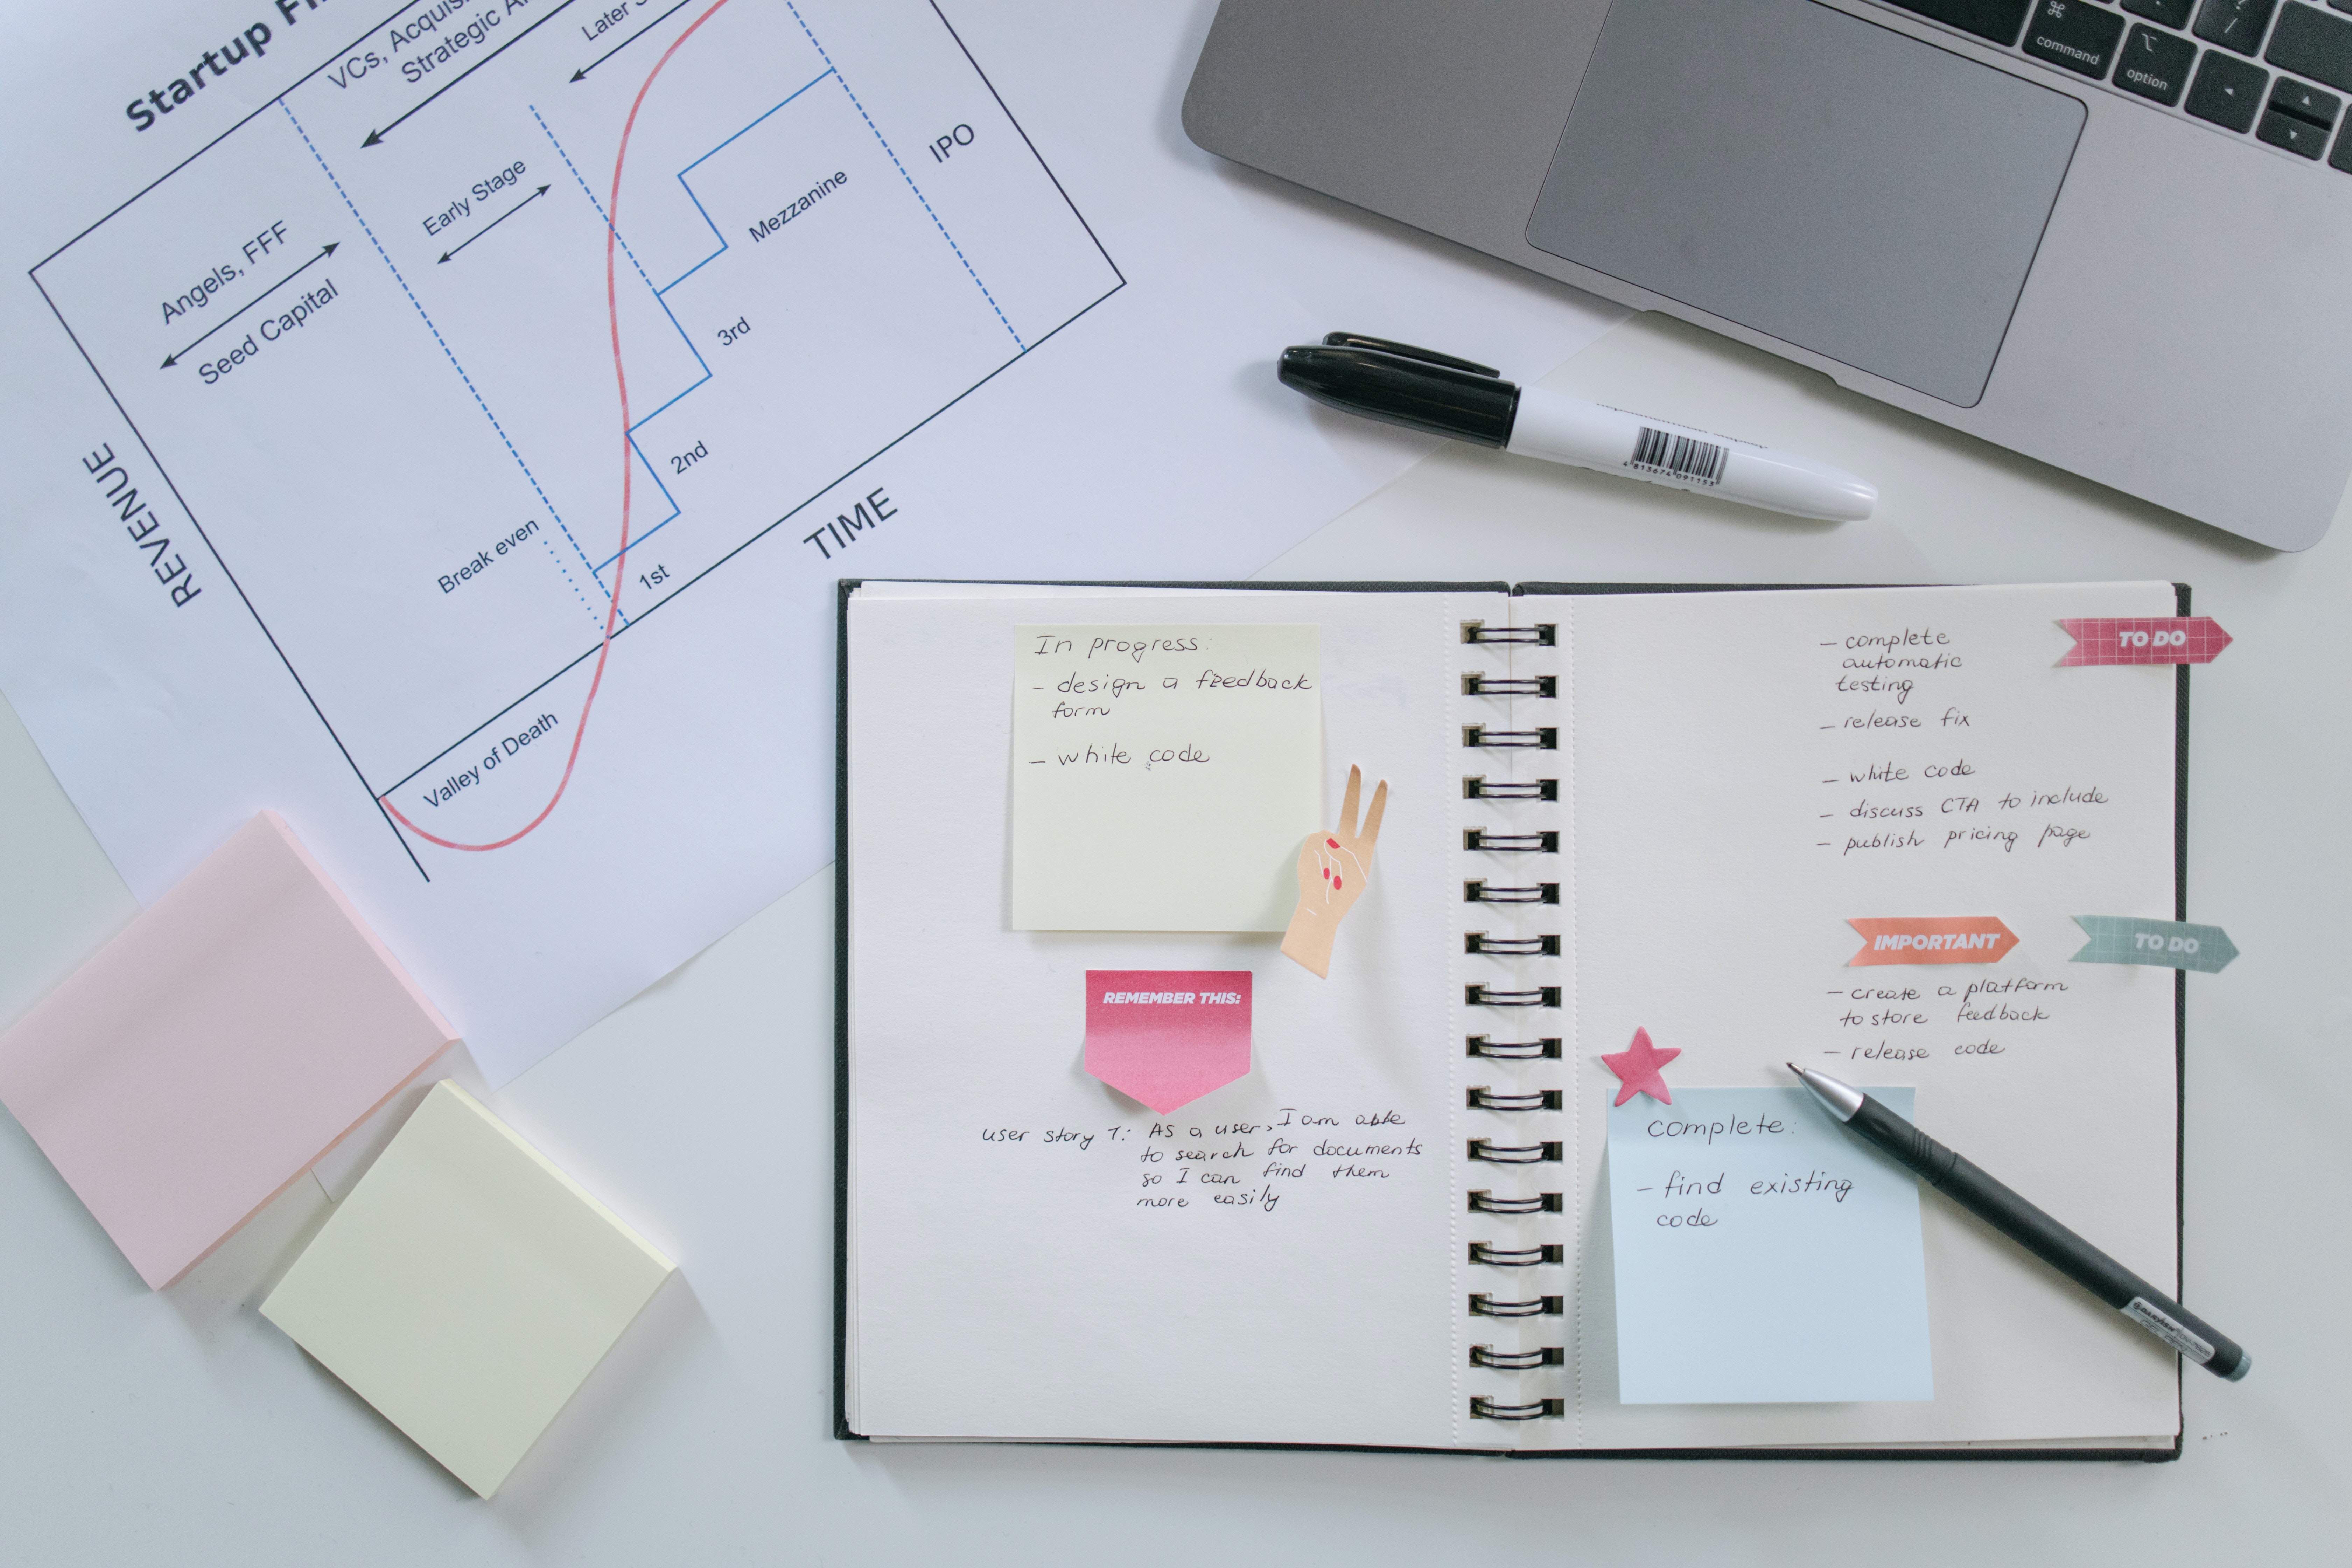 Startup
VCs,
Strategic
Later
Angels, FFF
Seed Capital
Early Stage
Mezzanine
IPO
3rd
2nd
1st
Break even
REVENUE
TIME
Valley of Death
⌘
command
⌥
option
?
/
◀
▲
▼
4 813674 091153
In progress:
- design a feedback
form
- white code
REMEMBER THIS:
user story 1: As a user, I am able
to search for documents
so I can find them
more easily
TO DO
- complete
automatic
testing
- release fix
- white code
- discuss CTA to include
- publish pricing page
IMPORTANT
TO DO
- create a platform
to store feedback
- release code
complete:
- find existing
code